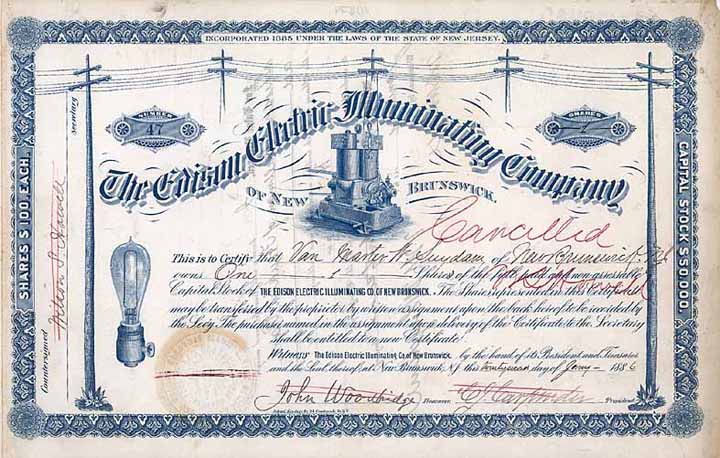 INCORPORATED 1885 UNDER THE LAWS OF THE STATE OF NEW JERSEY.
NUMBER
47
SHARES
1
The Edison Electric Illuminating Company
OF NEW BRUNSWICK.
Cancelled
This is to Certify that Van Marter W. Suydam of New Brunswick NJ
owns One Shares of the fully paid and non-assessable
Capital Stock of THE EDISON ELECTRIC ILLUMINATING CO. OF NEW BRUNSWICK. The Shares represented in this Certificate
may be transferred by the proprietor by written assignment upon the back hereof to be recorded by
the Secy. The purchaser named in the assignment upon delivery of the Certificate to the Secretary
shall be entitled to a new Certificate.
Witness The Edison Electric Illuminating Co. of New Brunswick, by the hand of its President and Treasurer
and the Seal thereof, at New Brunswick, NJ this day of Jany 1886
John Woodbridge Treasurer President
SHARES $100. EACH.
Countersigned secretary
CAPITAL STOCK $50,000.